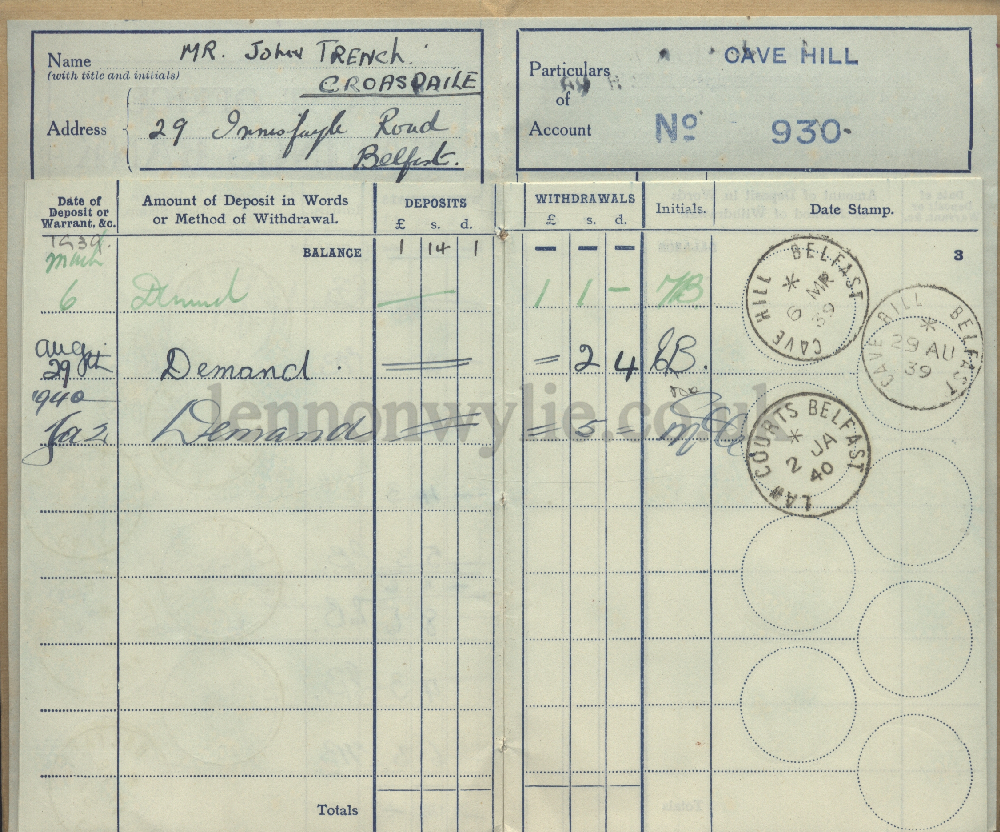 Name MR. JOHN TRENCH
(with title and initials) CROASDAILE
Address 29 Innisfayle Road
Belfast.
Particulars of Account
CAVE HILL
No 930
Date of Deposit or Warrant, &c. Amount of Deposit in Words or Method of Withdrawal. DEPOSITS £ s. d. WITHDRAWALS £ s. d. Initials. Date Stamp.
1939. BALANCE 1 14 1 – – – 3
March
6 Demand 1 1 –
CAVE HILL BELFAST * 6 MR 39
Aug.
29th Demand = 2 4
CAVE HILL BELFAST * 29 AU 39
1940
Ja 2 Demand = 5 –
LAW COURTS BELFAST * 2 JA 40
lennonwylie.co.uk
Totals